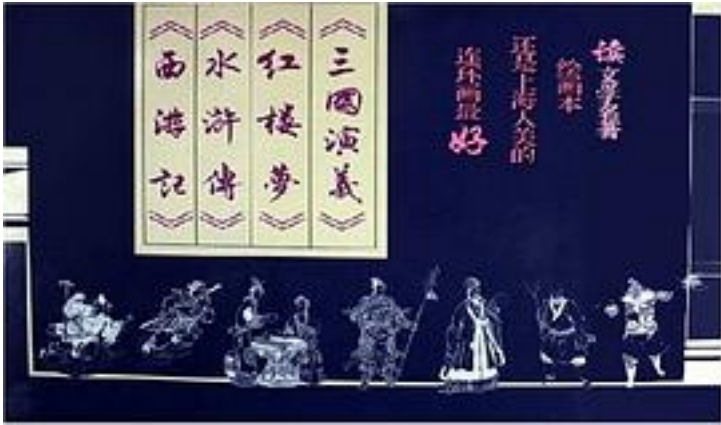 读文学名著
绘画本
还是上海人美的
连环画最
好
《三國演義》
《红楼夢》
《水浒傳》
《西游記》